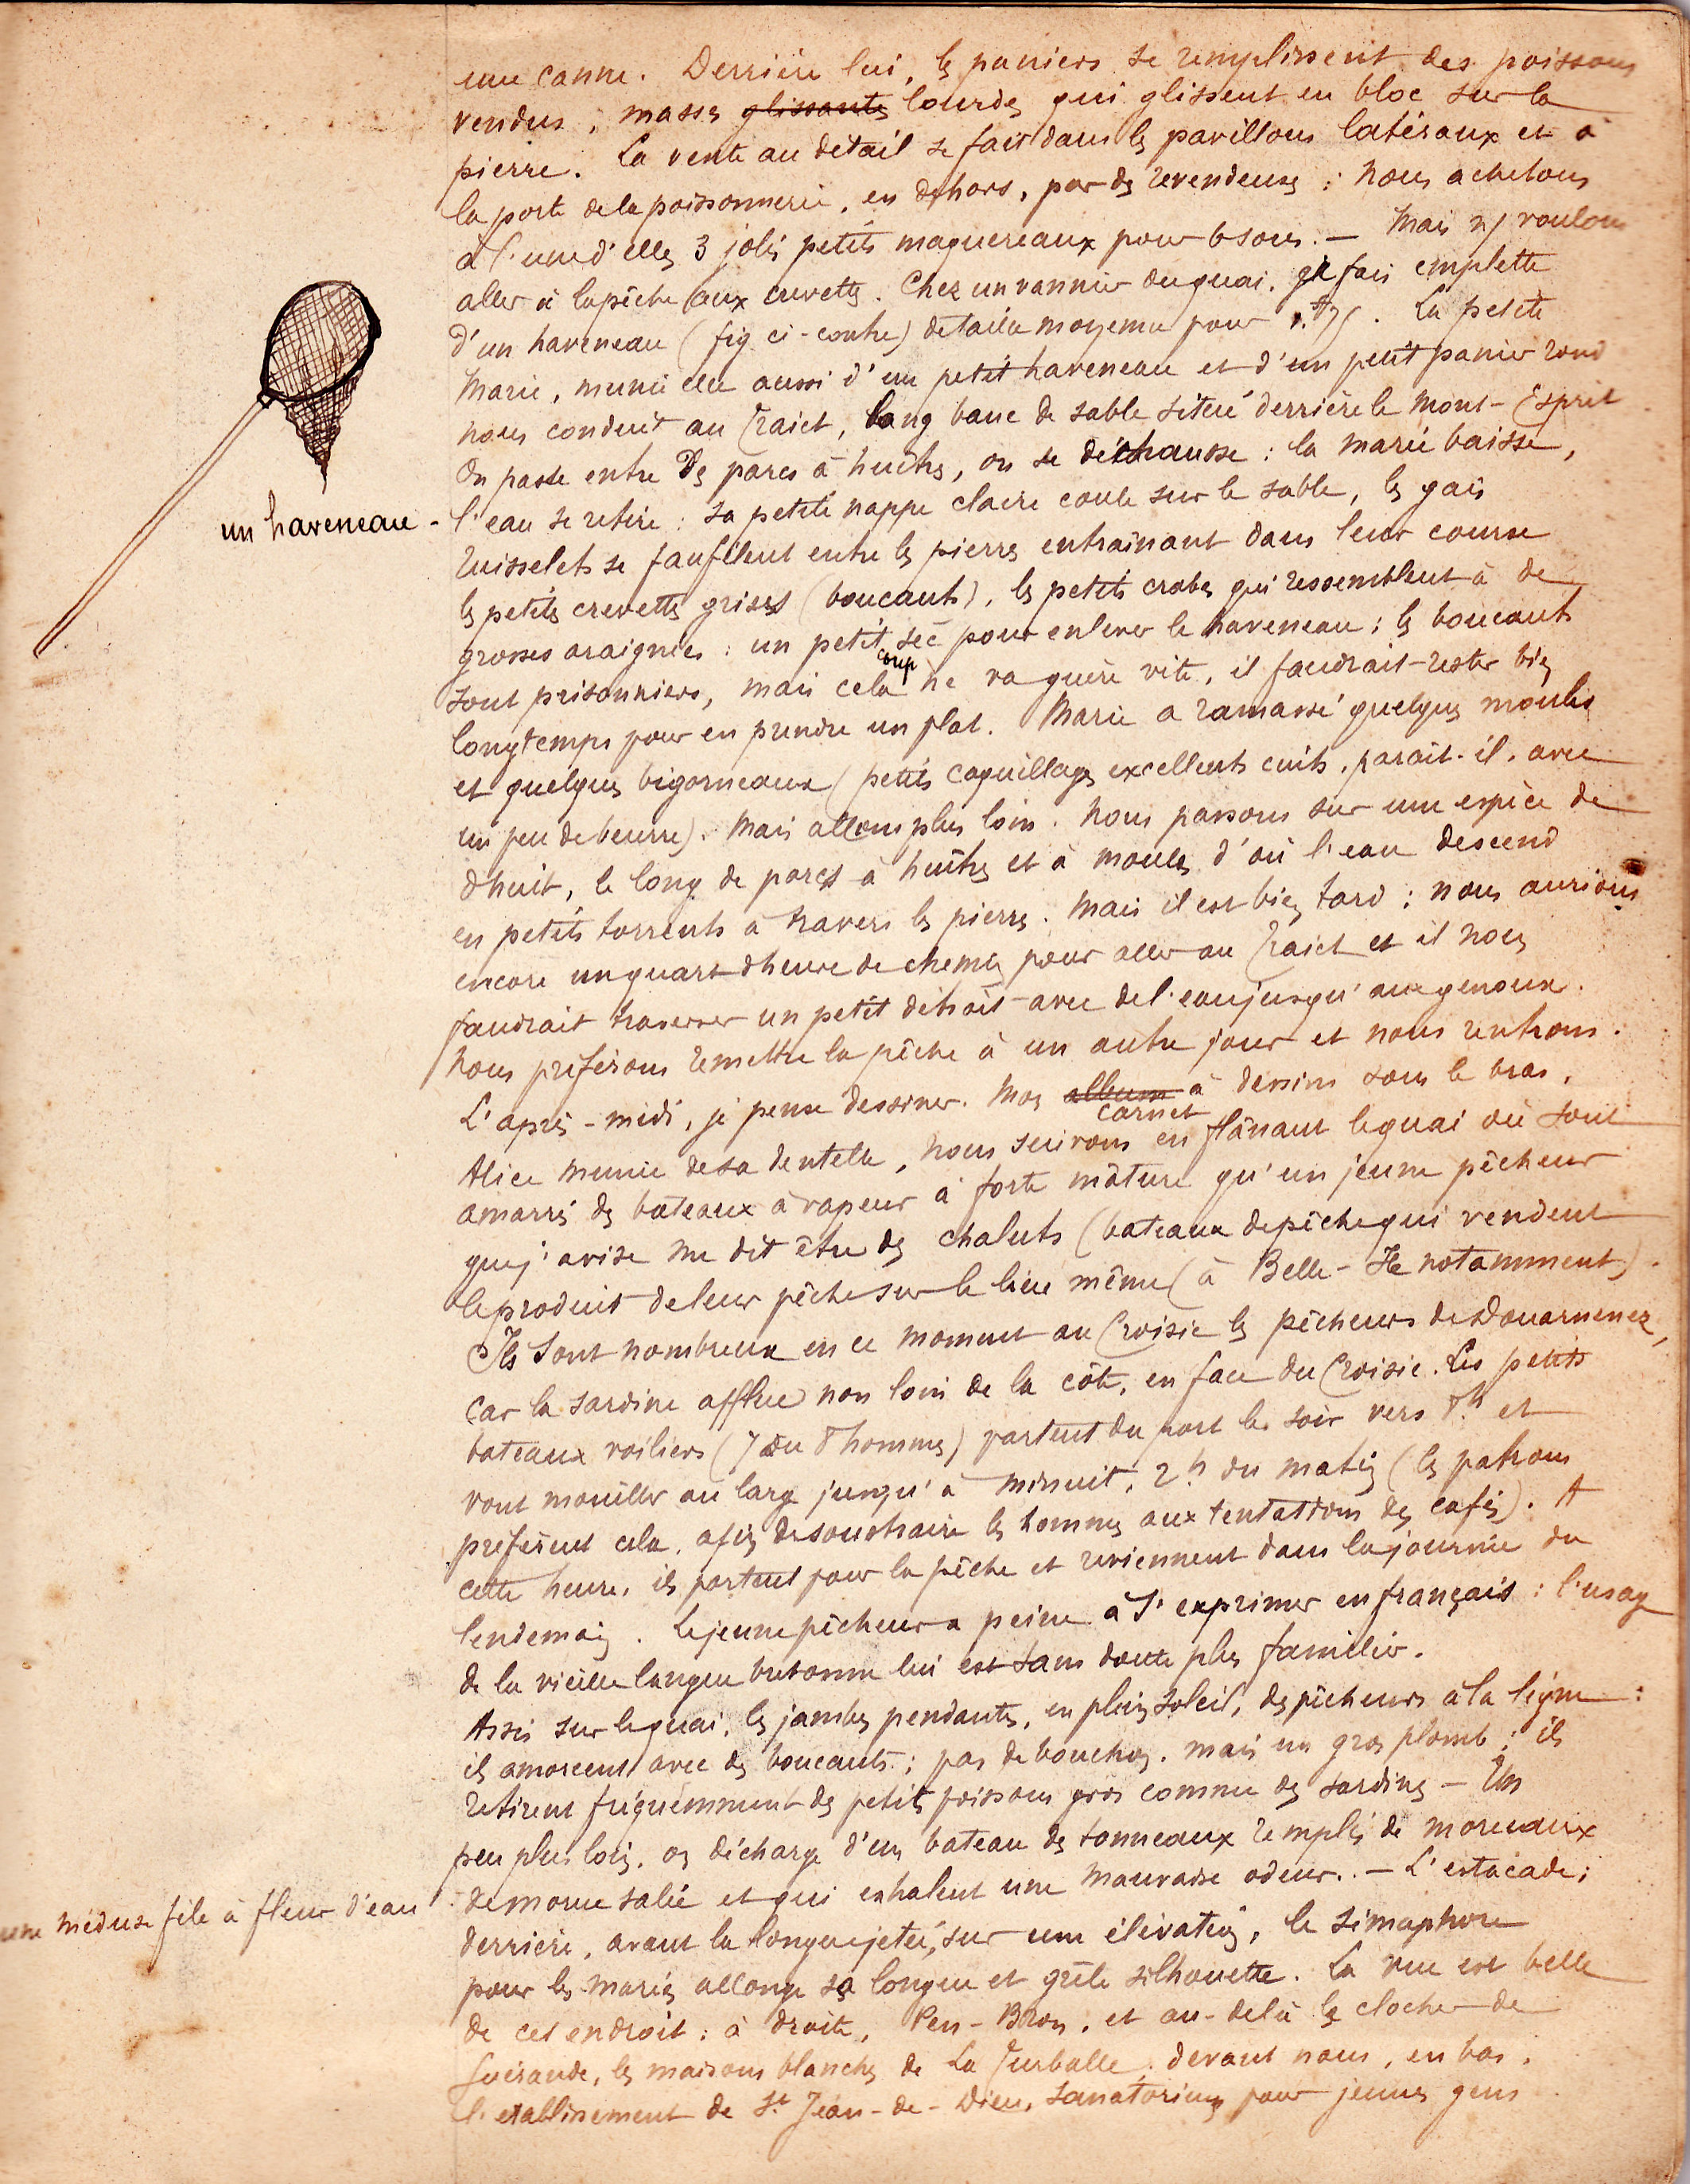 une canne. Derrière lui, les paniers se remplissent des poissons
vendus, masses glissantes lourdes qui glissent en bloc sur la
pierre. La vente au détail se fait dans les pavillons latéraux et à
la porte de la poissonnerie, en dehors, par des revendeuses : nous achetons
à l'une d'elles 3 jolis petits maquereaux pour 6 sous. — Mais ns voulons
aller à la pêche aux crevettes. Chez un vannier du quai, je fais emplette
d'un haveneau (fig ci-contre) de taille moyenne pour 1.f75. La petite
Marie, munie elle aussi d'un petit haveneau et d'un petit panier rond
nous conduit au Traict, long banc de sable situé derrière le Mont-Esprit
On passe entre des parcs à huîtres, on se déchausse : la marée baisse,
un haveneau -
l'eau se retire : sa petite nappe claire coule sur le sable, les gais
ruisselets se faufilent entre les pierres entraînant dans leur course
les petites crevettes grises (boucauts), les petits crabes qui ressemblent à de
grosses araignées : un petit coup sec pour enlever le haveneau : les boucauts
sont prisonniers, mais cela ne va guère vite, il faudrait rester bien
longtemps pour en prendre un plat. Marie a ramassé quelques moules
et quelques bigorneaux (petits coquillages excellents cuits, paraît-il, avec
un peu de beurre). Mais allons plus loin. Nous passons sur une espèce de
d'huit, le long de parcs à huîtres et à moules d'où l'eau descend
en petits torrents à travers les pierres. Mais il est bien tard : nous aurions
encore un quart d'heure de chemin pour aller au Traict et il nous
faudrait traverser un petit détroit avec de l'eau jusqu'aux genoux.
Nous préférons remettre la pêche à un autre jour et nous rentrons.
L'après-midi, je pense dessiner. Mon album carnet à dessins sous le bras,
Alice munie de sa dentelle, nous suivons en flânant le quai où sont
amarrés des bateaux à vapeur à forte mâture qu'un jeune pêcheur
que j'avise me dit être des chaluts (bateaux de pêche qui vendent
le produit de leur pêche sur le lieu même (à Belle-Ile notamment).
Ils sont nombreux en ce moment au Croisic les pêcheurs de Douarnenez,
car la sardine afflue non loin de la côte, en face du Croisic. Les petits
bateaux voiliers (7 ou 8 hommes) partent du port le soir vers 8h et
vont mouiller au large jusqu'à minuit, 2h du matin (les patrons
préfèrent cela, afin de soustraire les hommes aux tentations des cafés). A
cette heure, ils partent pour la pêche et reviennent dans la journée du
lendemain. Le jeune pêcheur a peine à s'exprimer en français : l'usage
de la vieille langue bretonne lui est sans doute plus familier.
Assis sur le quai, les jambes pendantes, en plein soleil, des pêcheurs à la ligne :
ils amorcent avec des boucauts ; pas de bouchon, mais un gros plomb ; ils
retirent fréquemment des petits poissons gros comme des sardines — Un
peu plus loin, on décharge d'un bateau des tonneaux remplis de morceaux
de morue salée et qui exhalent une mauvaise odeur. — L'estacade ;
une méduse file à fleur d'eau
derrière, avant la longue jetée, sur une élévation, le sémaphore
pour les marées allonge sa longue et grêle silhouette. La vue est belle
de cet endroit : à droite, Pen-Bron, et au-delà le clocher de
Guérande, les maisons blanches de La Turballe, devant nous, en bas,
l'établissement de St Jean-de-Dieu, sanatorium pour jeunes gens